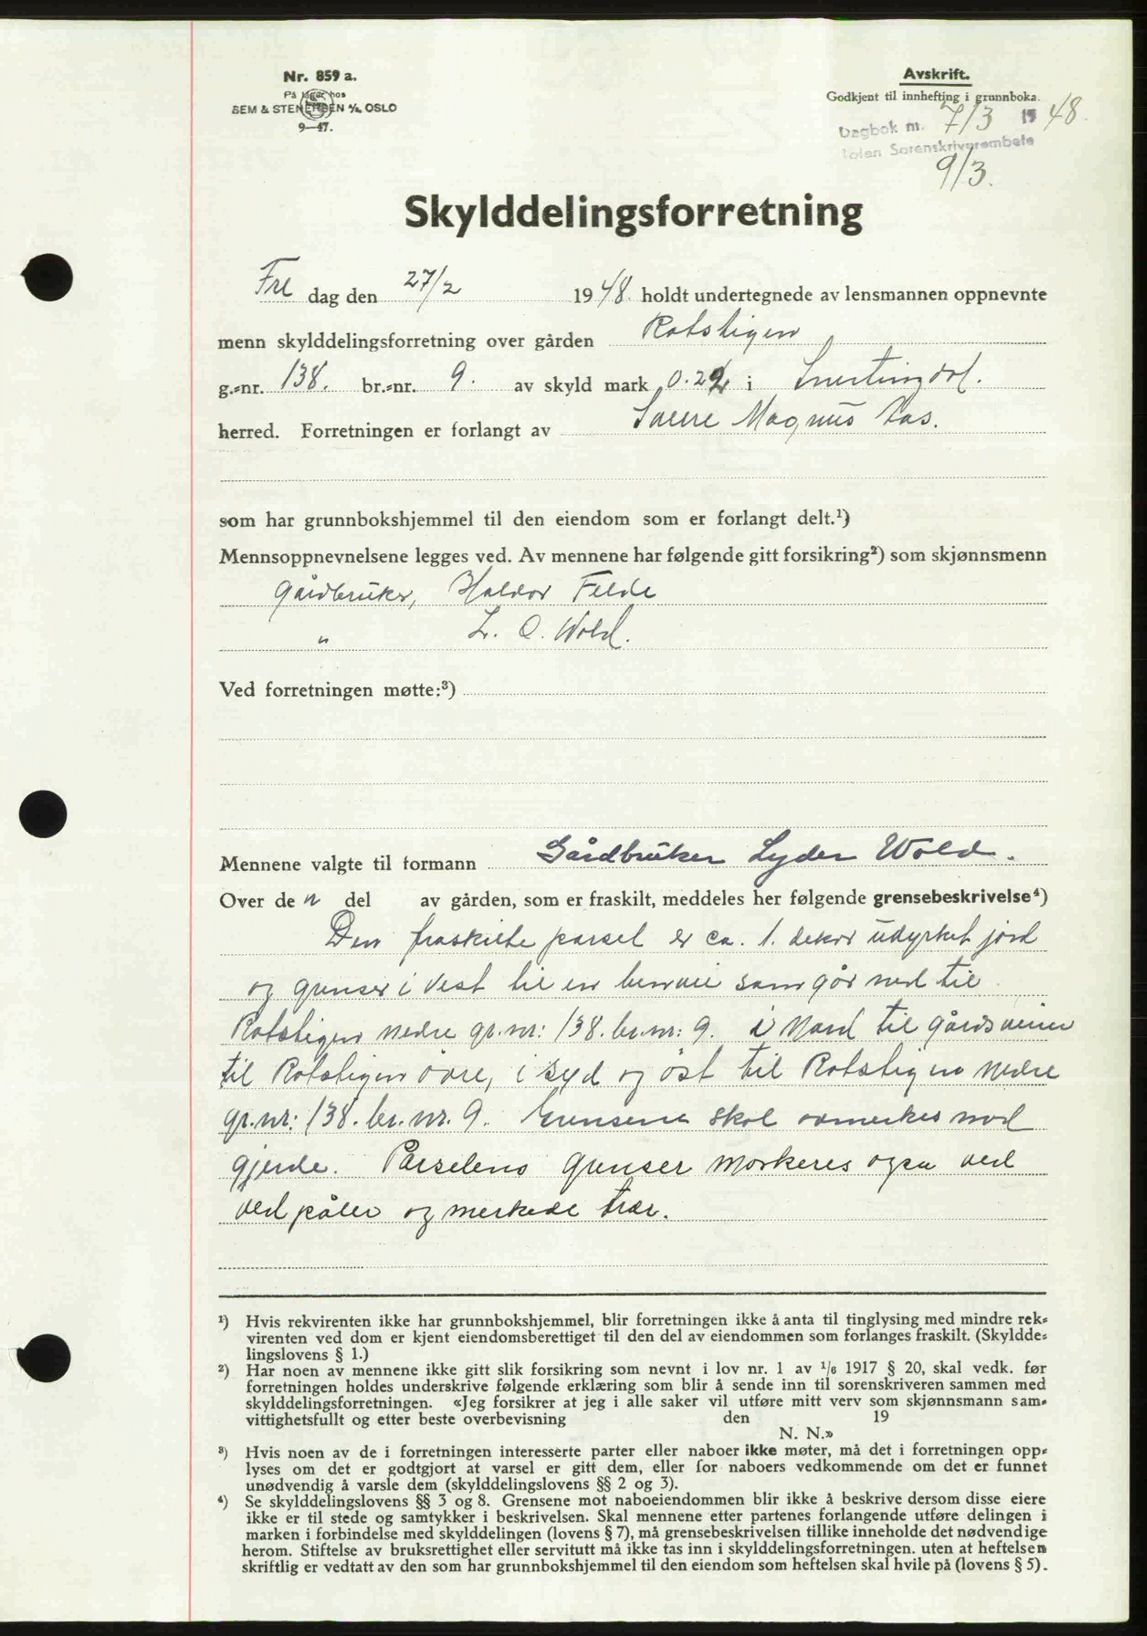 Nr. 859 a.
På lager hos
SEM & STENERSEN A/S, OSLO
9—47.
Avskrift.
Godkjent til innhefting i grunnboka.
Dagbok nr. 713 1948.
Toten Sorenskriverembete
9/3.
Skylddelingsforretning
Fre dag den 27/2 1948 holdt undertegnede av lensmannen oppnevnte
menn skylddelingsforretning over gården Rotstigen
g.-nr. 138. br.-nr. 9. av skyld mark 0.22 i Snertingdal.
herred. Forretningen er forlangt av Sverre Magnus Aas.
som har grunnbokshjemmel til den eiendom som er forlangt delt.¹)
Mennsoppnevnelsene legges ved. Av mennene har følgende gitt forsikring²) som skjønnsmenn
Gårdbruker, Haldor Felde
" L. O. Wold.
Ved forretningen møtte:³)
Mennene valgte til formann Gårdbruker Lyder Wold.
Over de n del av gården, som er fraskilt, meddeles her følgende grensebeskrivelse⁴)
Den fraskilte parsel er ca. 1. dekar udyrket jord
og grenser i Vest til en som går ned til
Rotstigen nedre gr.nr: 138. br.nr: 9. i Nord til gårdsveien
til Rotstigen övre, i syd og öst til Rotstigen nedre
gr.nr: 138. br.nr. 9. Grensene skal med
gjerde. Parselens grenser markeres også ved
ved påler og merkede trær.
¹) Hvis rekvirenten ikke har grunnbokshjemmel, blir forretningen ikke å anta til tinglysing med mindre rek-
virenten ved dom er kjent eiendomsberettiget til den del av eiendommen som forlanges fraskilt. (Skyldde-
lingslovens § 1.)
²) Har noen av mennene ikke gitt slik forsikring som nevnt i lov nr. 1 av ¹/₆ 1917 § 20, skal vedk. før
forretningen holdes underskrive følgende erklæring som blir å sende inn til sorenskriveren sammen med
skylddelingsforretningen. «Jeg forsikrer at jeg i alle saker vil utføre mitt verv som skjønnsmann sam-
vittighetsfullt og etter beste overbevisning den 19
N. N.»
³) Hvis noen av de i forretningen interesserte parter eller naboer ikke møter, må det i forretningen opp-
lyses om det er godtgjort at varsel er gitt dem, eller for naboers vedkommende om det er funnet
unødvendig å varsle dem (skylddelingslovens §§ 2 og 3).
⁴) Se skylddelingslovens §§ 3 og 8. Grensene mot naboeiendommen blir ikke å beskrive dersom disse eiere
ikke er til stede og samtykker i beskrivelsen. Skal mennene etter partenes forlangende utføre delingen i
marken i forbindelse med skylddelingen (lovens § 7), må grensebeskrivelsen tillike inneholde det nødvendige
herom. Stiftelse av bruksrettighet eller servitutt må ikke tas inn i skylddelingsforretningen. uten at heftelsen
skriftlig er vedtatt av den som har grunnbokshjemmel til den eiendom som heftelsen skal hvile på (lovens § 5).